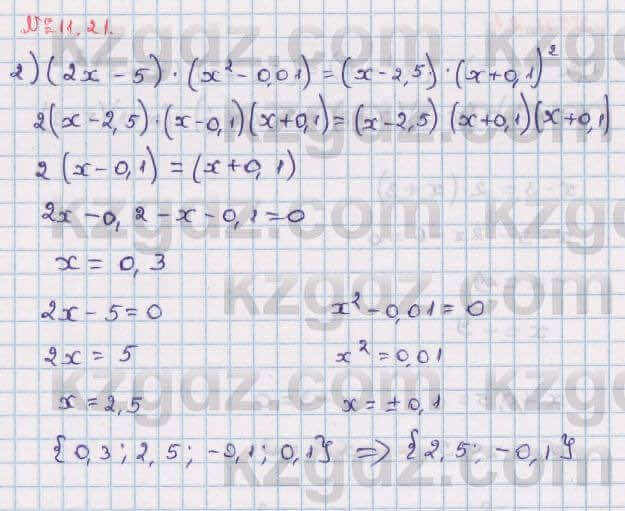 №11.21.
2) (2x - 5) · (x² - 0,01) = (x - 2,5) · (x + 0,1)²
2(x - 2,5) · (x - 0,1)(x + 0,1) = (x - 2,5) (x + 0,1)(x + 0,1)
2(x - 0,1) = (x + 0,1)
2x - 0,2 - x - 0,1 = 0
x = 0,3
2x - 5 = 0 x² - 0,01 = 0
2x = 5 x² = 0,01
x = 2,5 x = ±0,1
{0,3; 2,5; -0,1; 0,1} => {2,5; -0,1}
kzgdz.com
kzgdz.com
kzgdz.com
kzgdz.com
kzgdz.com
kzgdz.com